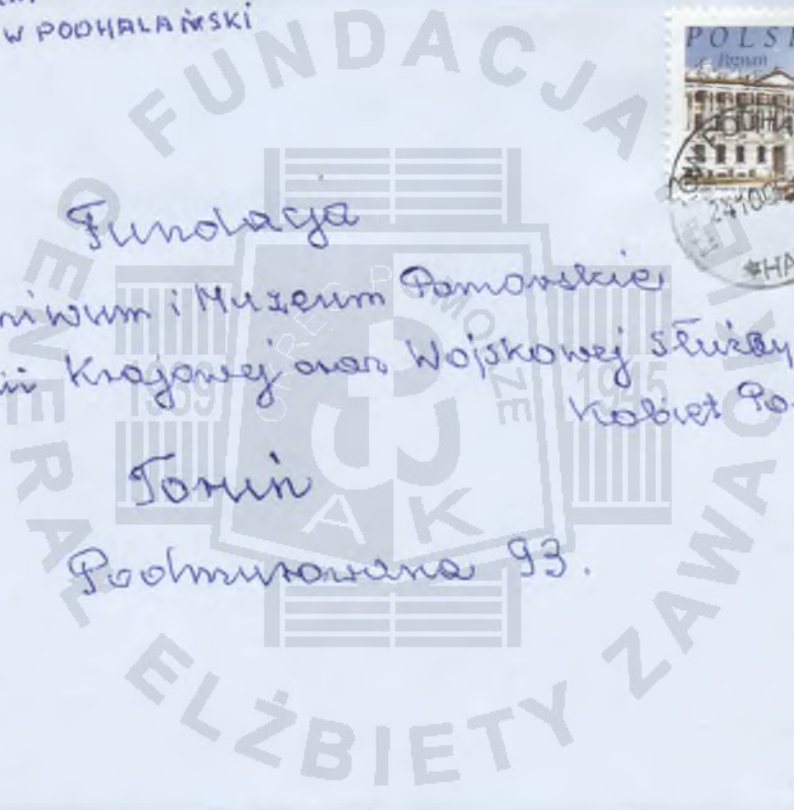 W PODHALAŃSKI
POLS
Poznań
Fundacja
niwum i Muzeum Pomorskie
ii Krajowej oraz Wojskowej Służby
Kobiet Po
Toruń
Podmurowana 93.
FUNDACJA
GENERAŁ ELŻBIETY ZAWACKIEJ
OKRĘG POMORZE
1939
1945
AK